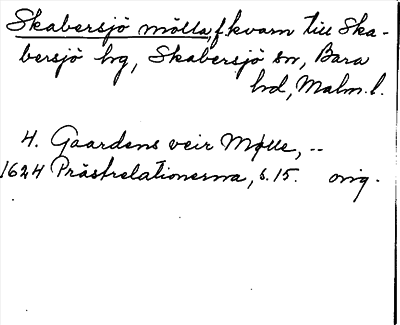 Skabersjö mölla, f. kvarn till Ska-
bersjö hg, Skabersjö sn, Bara
hd, Malm. l.
4. Gaardens veir Mølle, --
1624 Prästrelationerna, s. 15. orig.